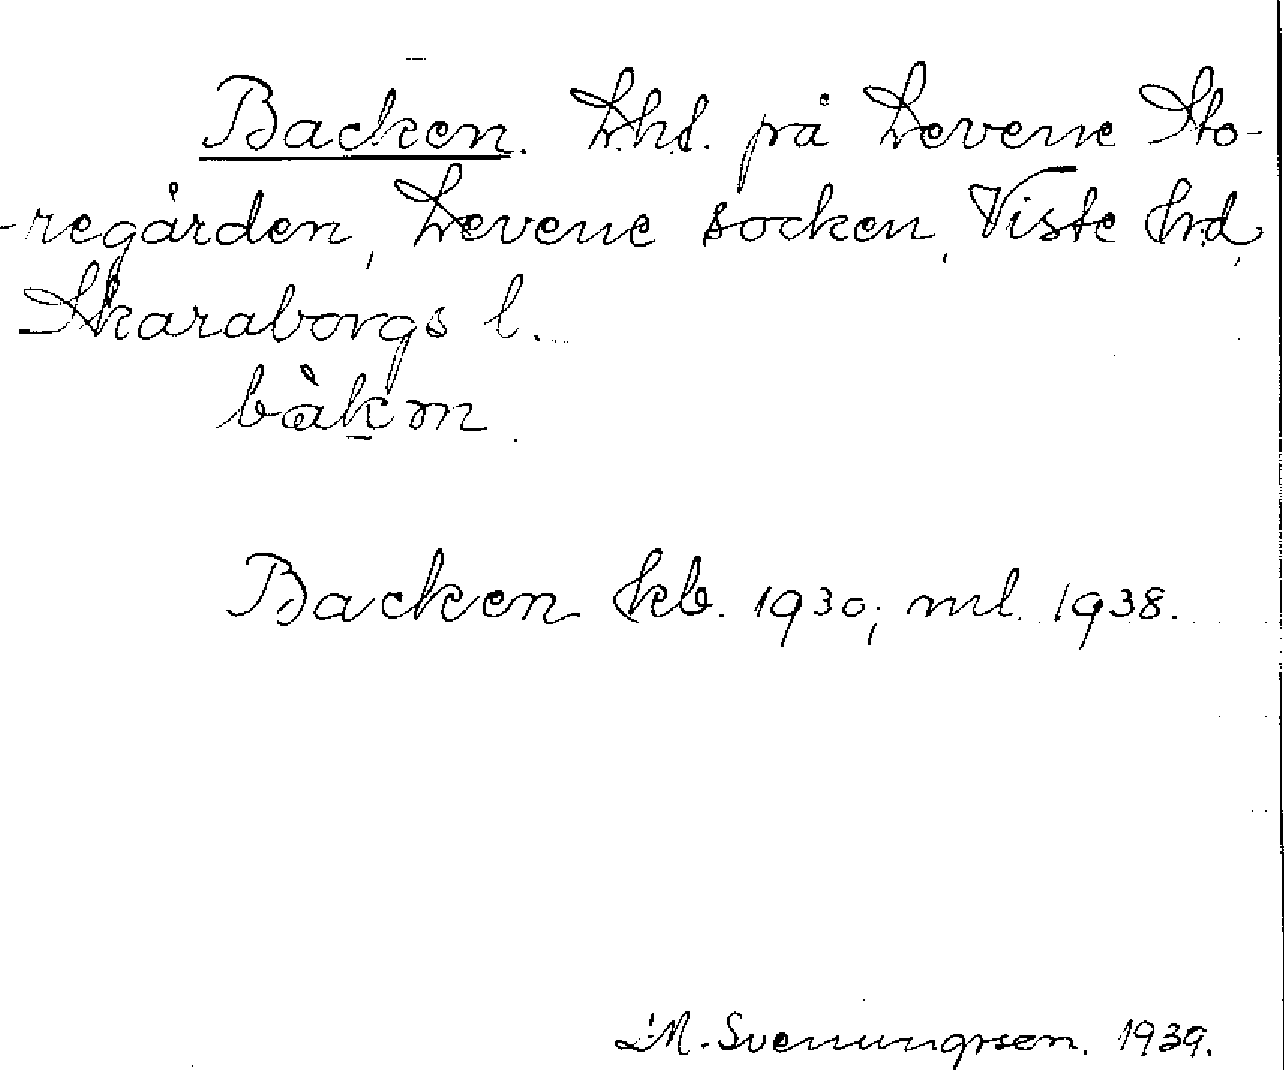 Backen. Lht. på Levene Sto-
-regården, Levene socken, Viste hrd,
Skaraborgs l.
bàkm
Backen kb. 1930; ml. 1938.
M. Svenungsson. 1939.